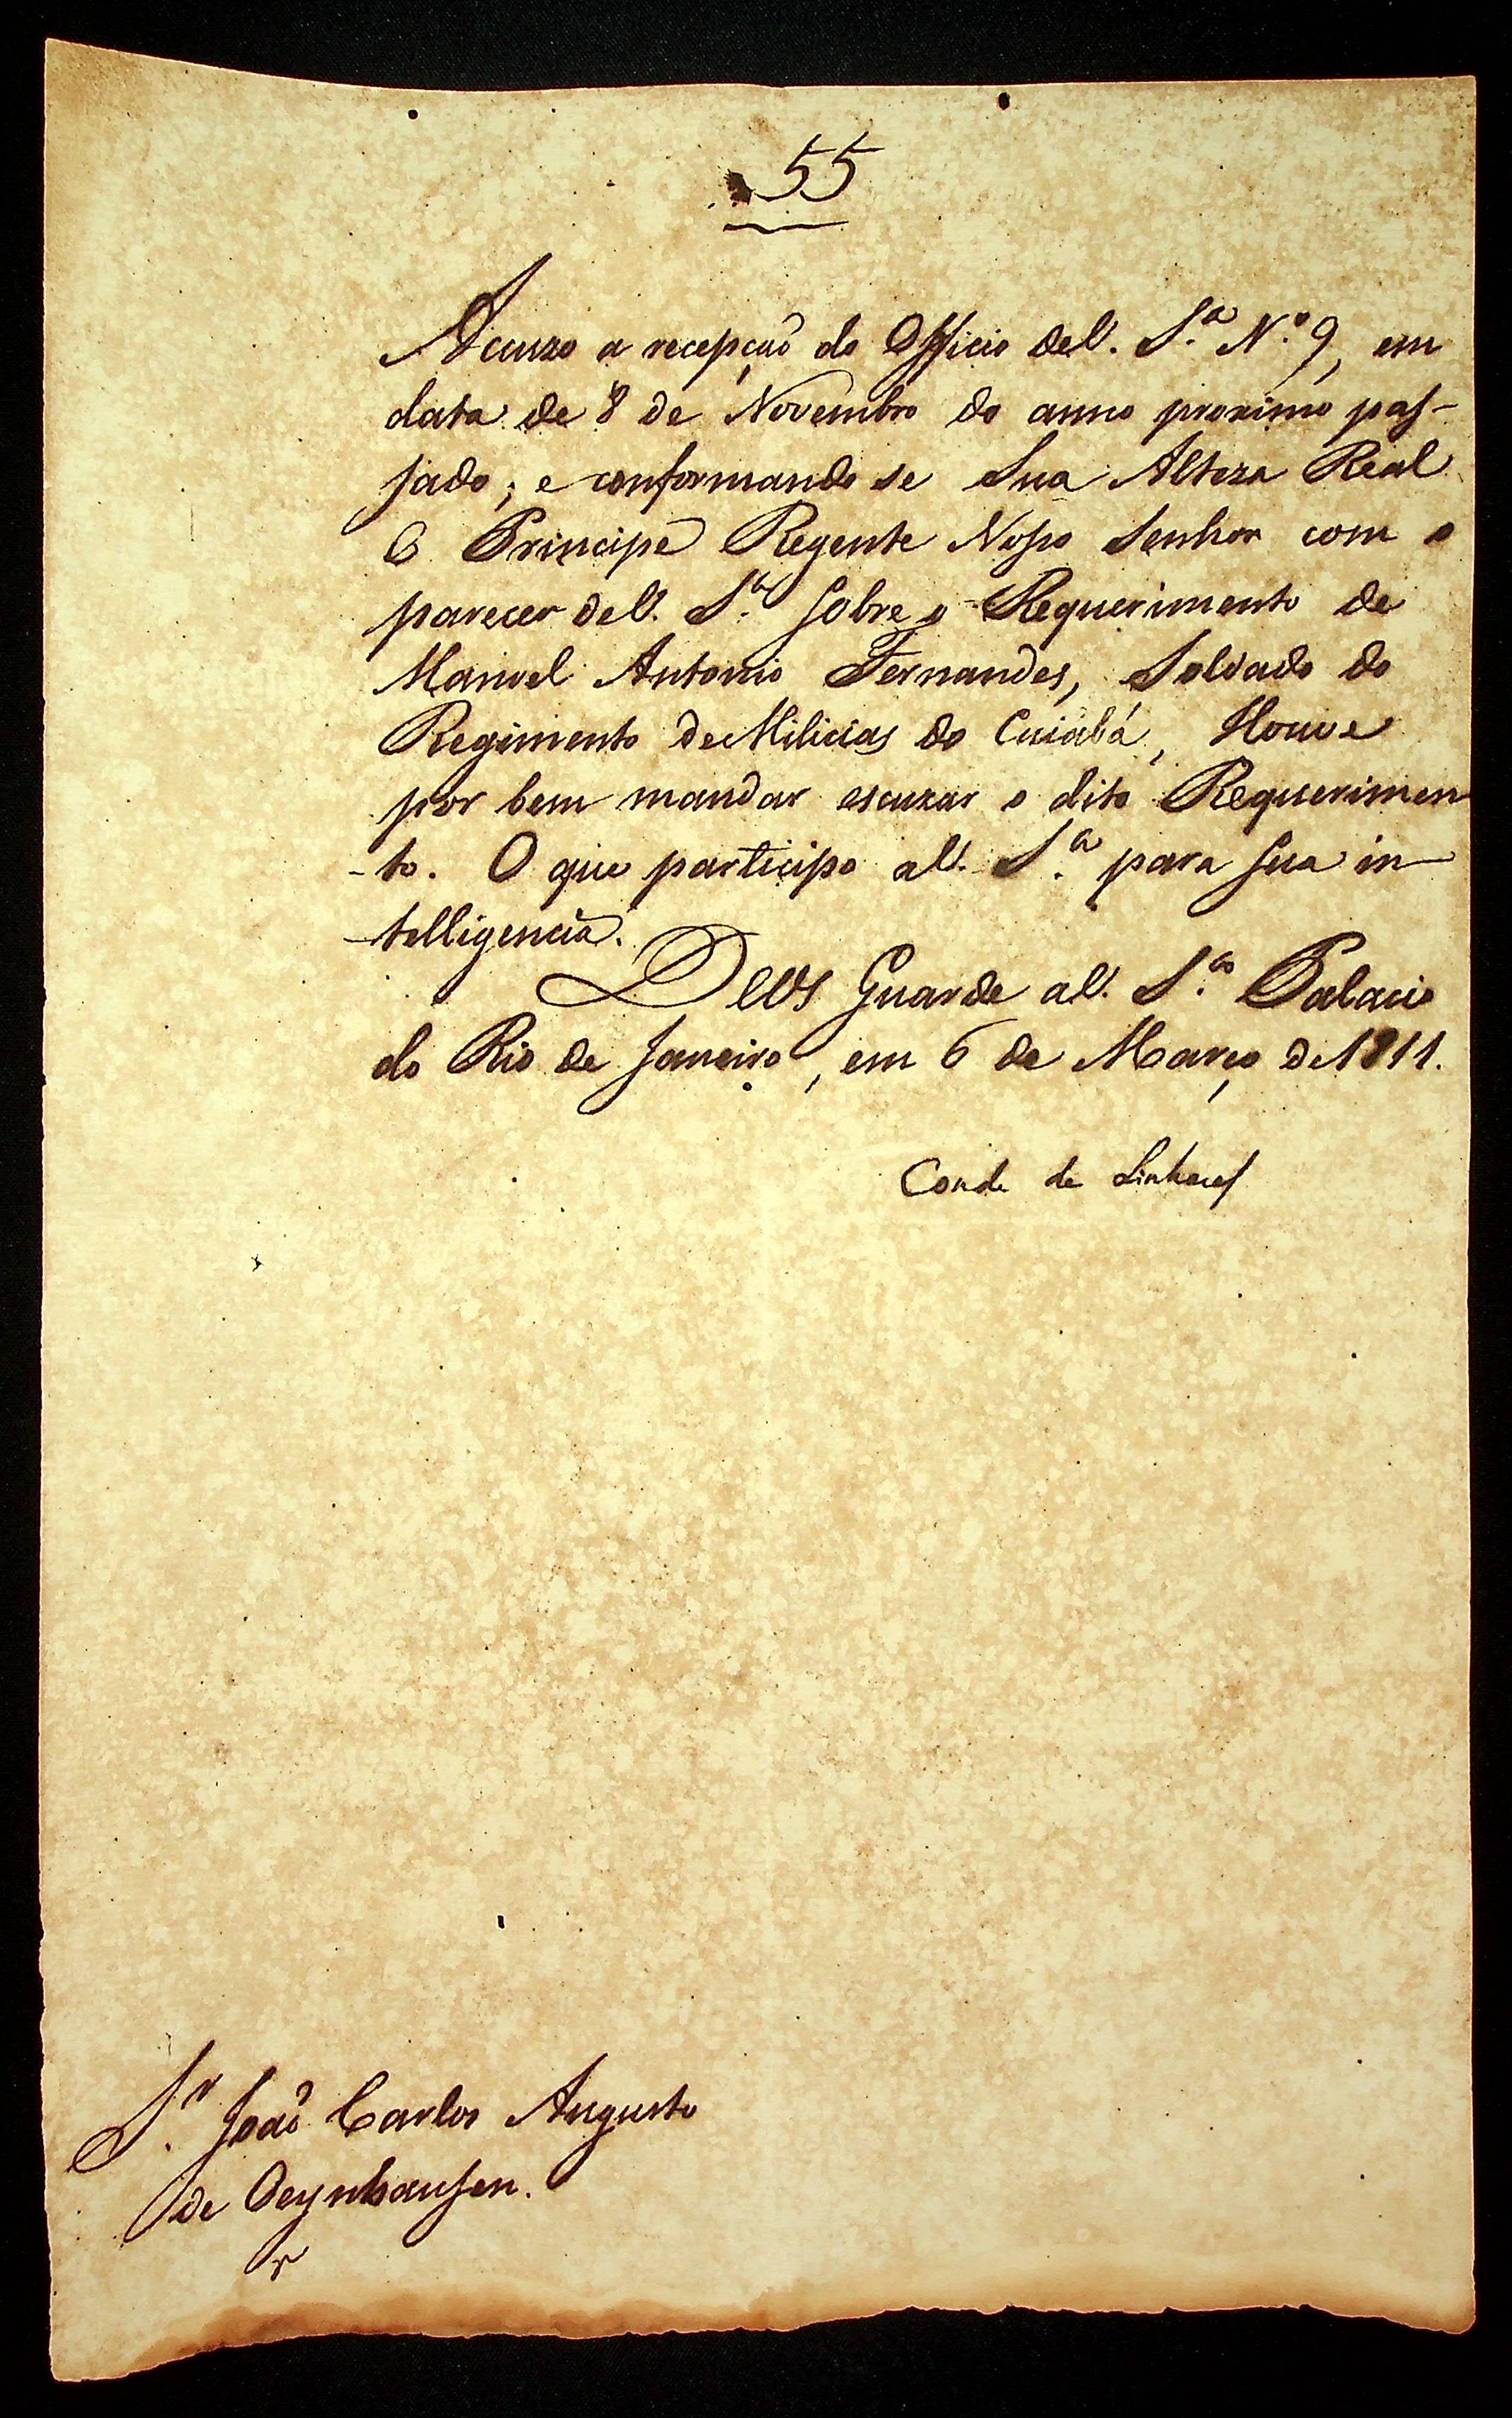 55
Acuzo a recepçaõ do Officio de V. S.ª N.º 9, em
data de 8 de Novembro do anno proximo pas-
sado; e conformando se Sua Alteza Real
O Principe Regente Nosso Senhor com o
parecer de V. S.ª sobre o Requerimento de
Manoel Antonio Fernandes, Soldado do
Regimento de Milicias do Cuiabá, Houve
por bem mandar escuzar o dito Requerimen
-to. O que participo a V. S.ª para sua in-
-telligencia.
Deos Guarde a V. S.ª Palacio
do Rio de Janeiro, em 6 de Março de 1811.
Conde de Linhares
S.r Joaõ Carlos Augusto
de Oeynhausen.